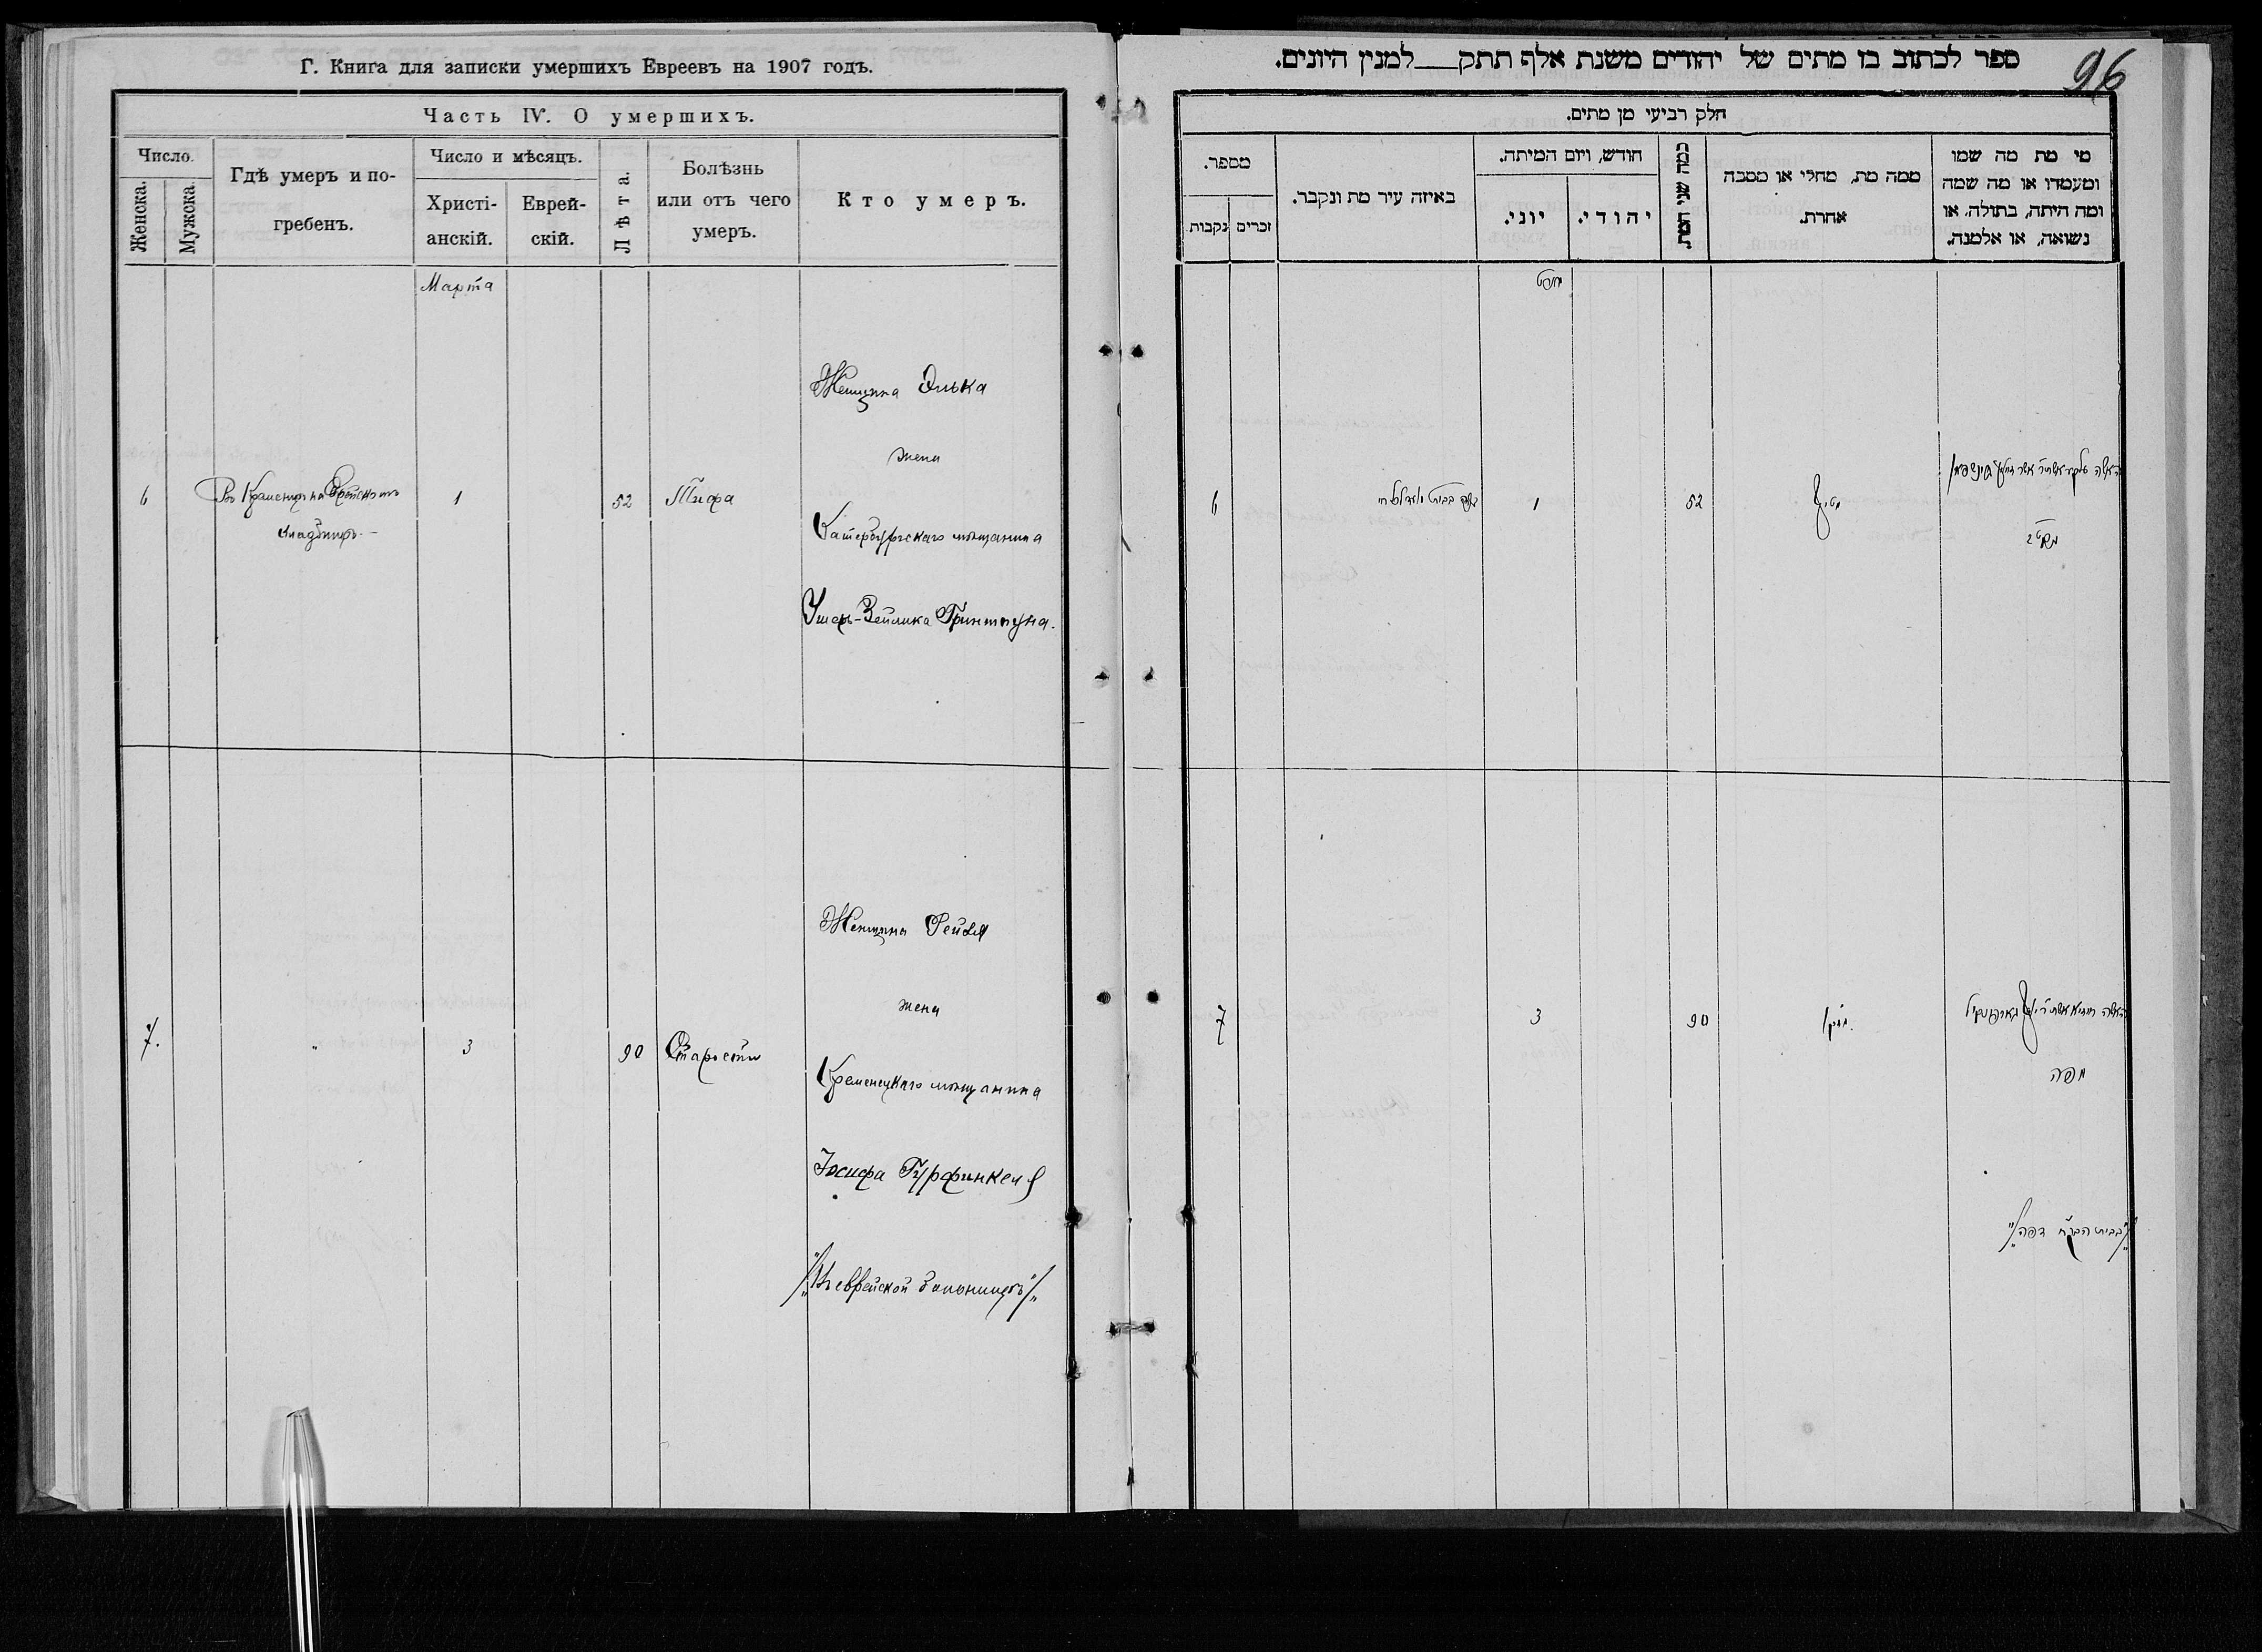 Г. Книга для записки умершихъ Евреевъ на 1907 годъ.
Часть IV. О умершихъ.
Число.
Женска.
Мужска.
Гдѣ умеръ и по-
гребенъ.
Число и мѣсяцъ.
Христі-
анскій.
Еврей-
скій.
Лѣта.
Болѣзнь
или отъ чего
умеръ.
Кто умеръ.
Марта
6
Въ Кременцѣ на Еврейскомъ
кладбищѣ
1
52
Тифа
Женщина Элька
жена
Катербургскаго мѣщанина
Ушеръ-Зейлика
7.
"
3
90
Старости
Женщина Рейзя
жена
Кременецкаго мѣщанина
Іосифа Гурфинкеля
/"Въ еврейской больницѣ"/
96
ספר לכתוב בו מתים של יהודים משנת אלף תתק__למנין היונים.
חלק רביעי מן מתים.
מספר.
נקבות
זכרים
באיזה עיר מת ונקבר.
חודש, ויום המיתה.
יוני.
יהודי.
כמה שני המת.
ממה מת, מחלי או מסבה
אחרת.
מי מת מה שמו
ומעמדו או מה שמה
ומה היתה, בתולה, או
נשואה, או אלמנה.
מארט
6
1
52
האשה
7
3
90
זקן
האשה
מפה